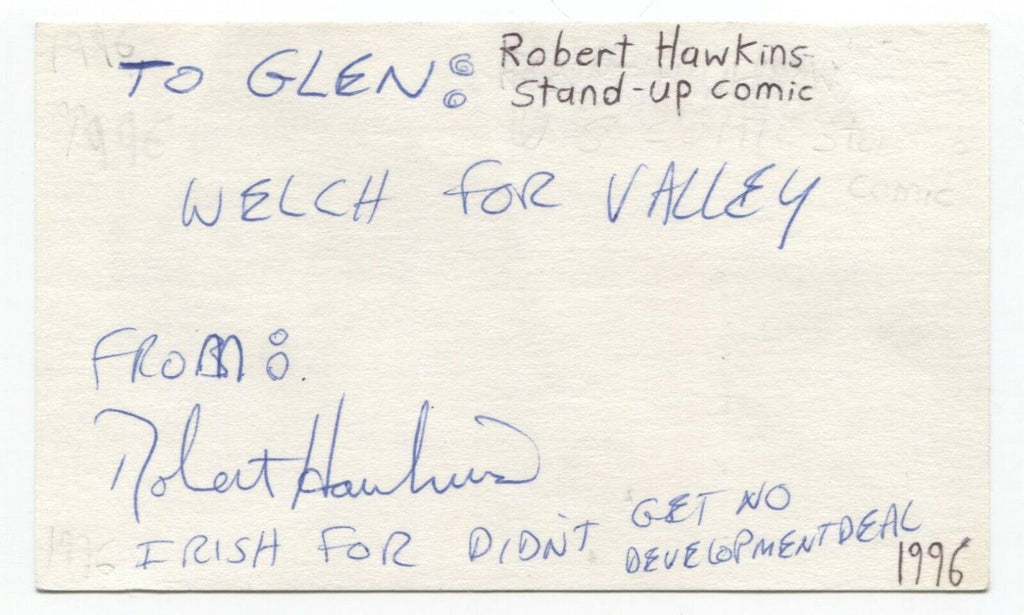 TO GLEN:
Robert Hawkins
Stand-up comic
WELCH FOR VALLEY
FROM:
Robert Hawkins
IRISH FOR DIDN'T GET NO
DEVELOPMENT DEAL
1996